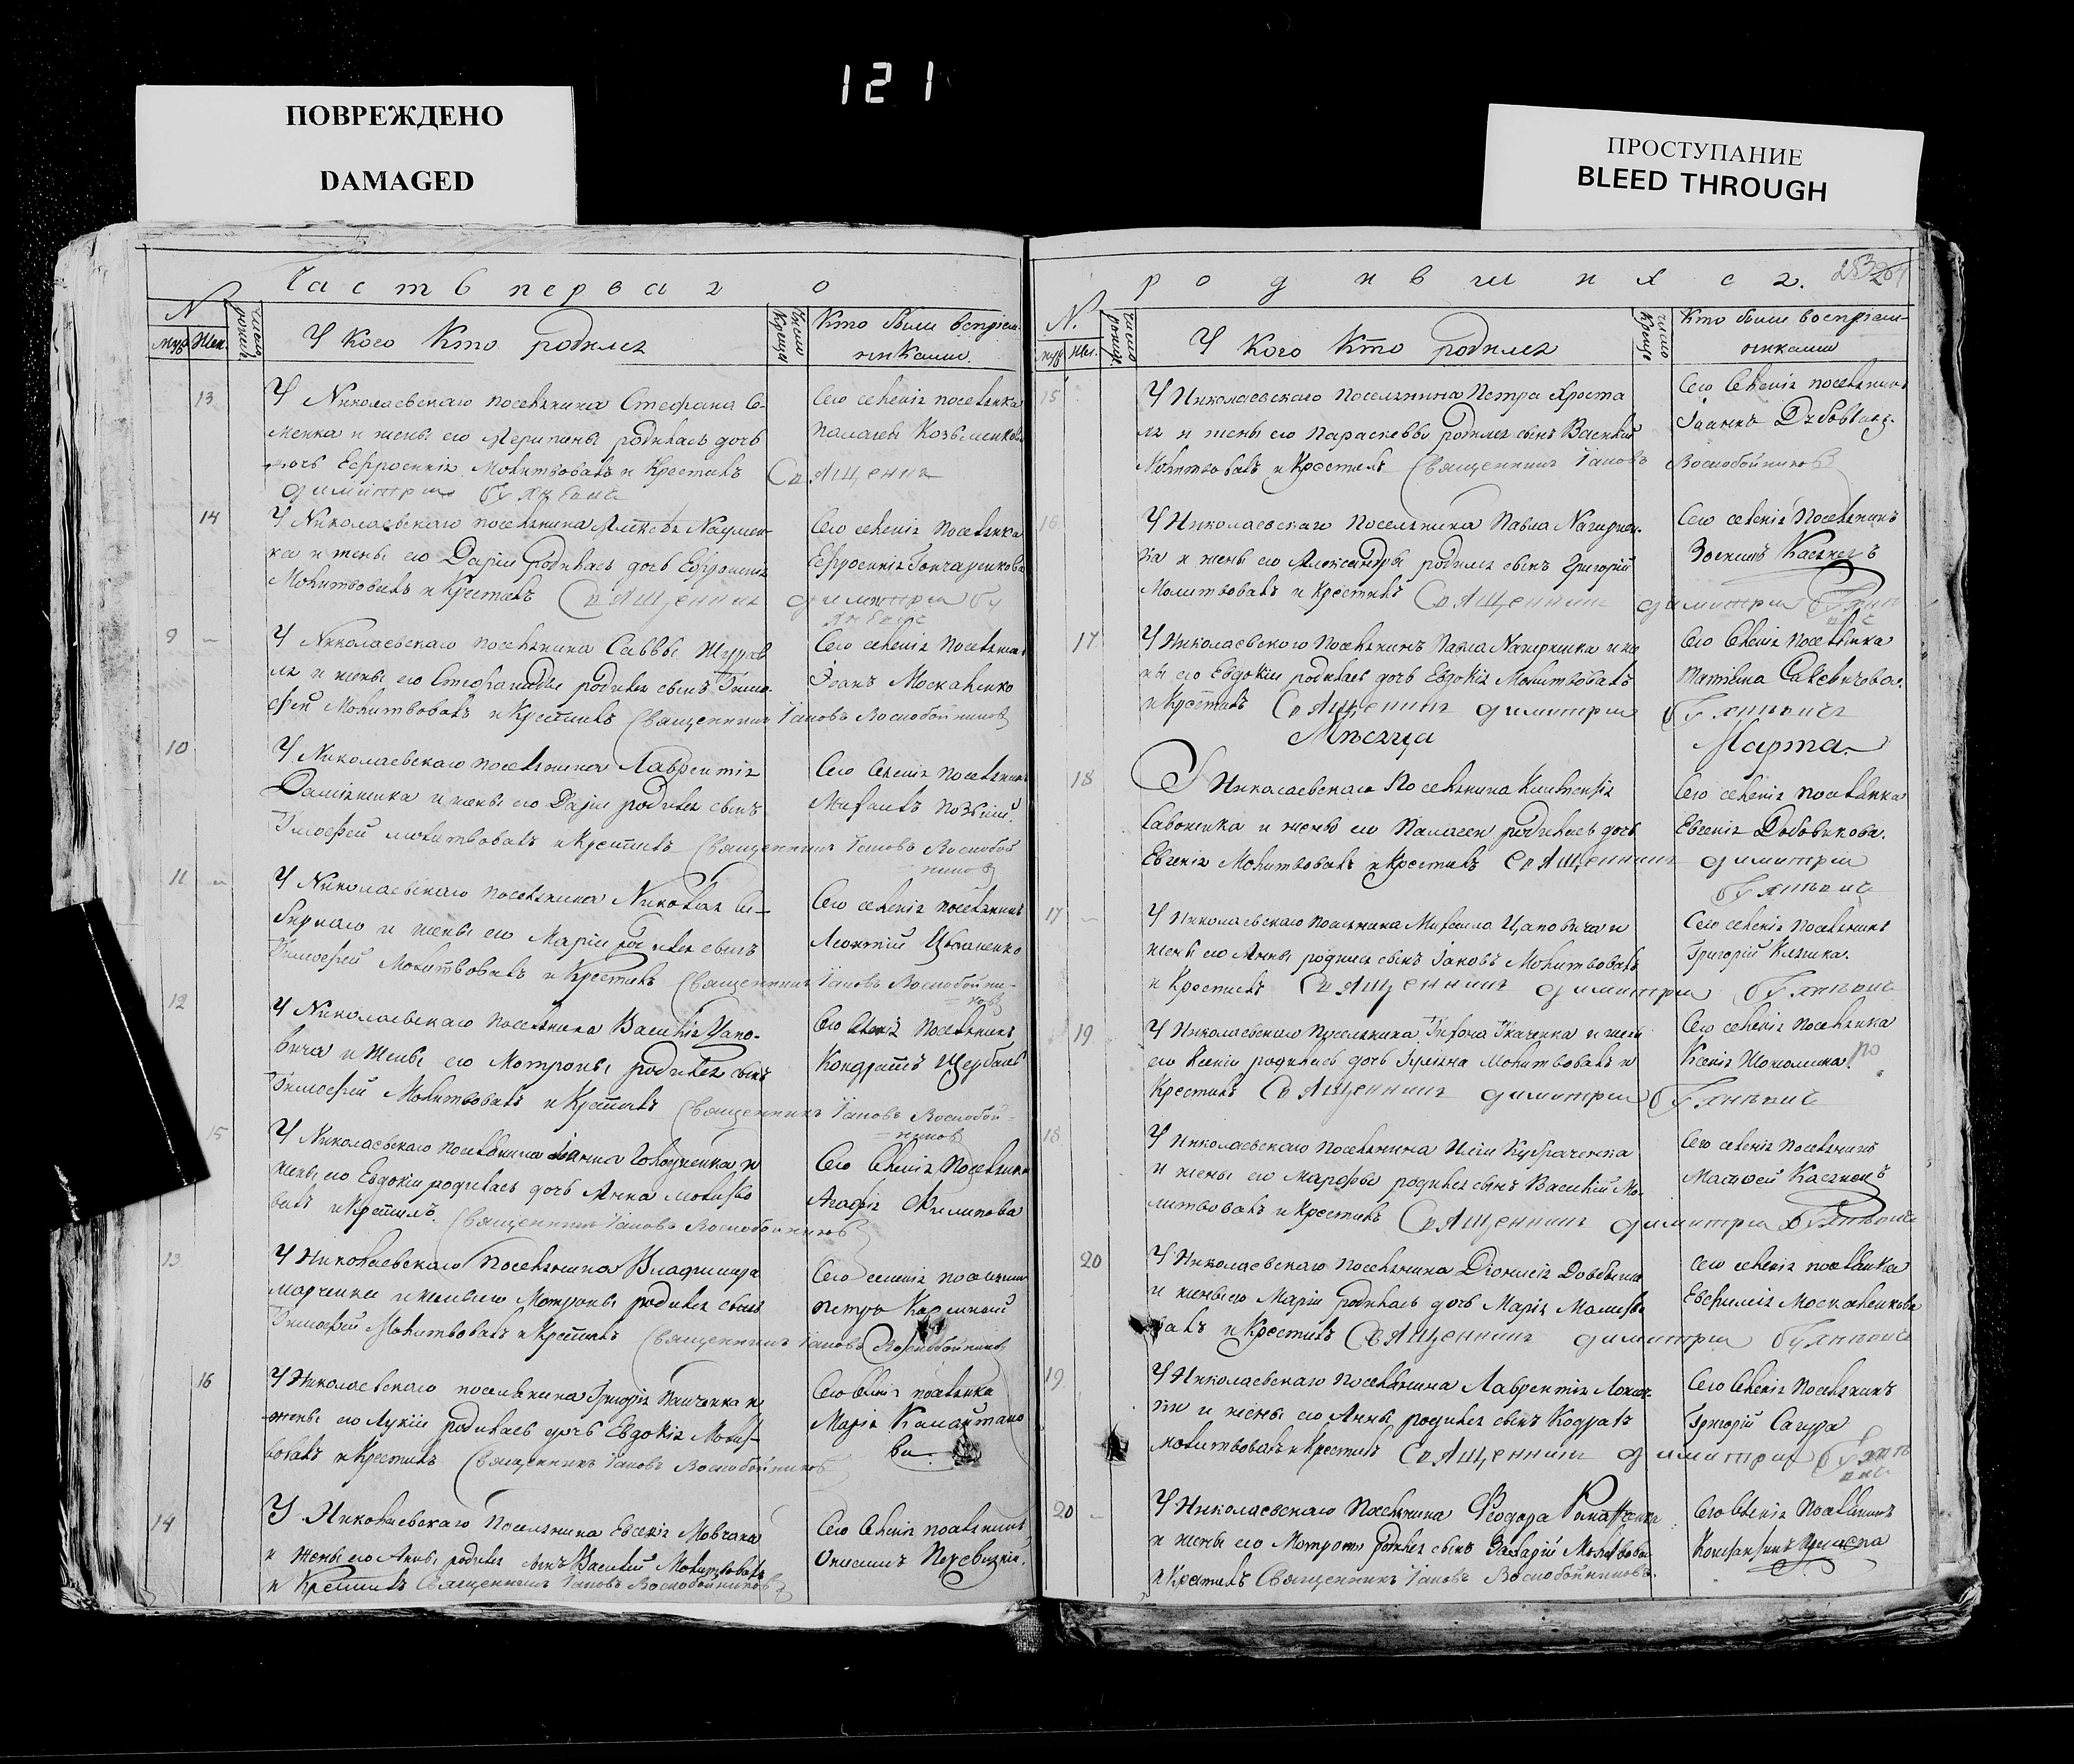 121
ПОВРЕЖДЕНО
DAMAGED
ПРОСТУПАНИЕ
BLEED THROUGH
Часть перваго
N
муж Жен.
число рожден
У кого Кто родился
Число Крещен
Кто были воспріем-
никами.
13
У Николаевскаго поселянина Стефана Се-
менка и жены его Агрипины родилась дочь
Ефросинія Молитвовалъ и Крестилъ Священникъ
Димитрій
Сего селенія поселянка
Палагея Козьменкова
14
У Николаевскаго поселянина Алексея Наумен-
ка и жены его Даріи родилась дочь Ефросинія
Молитвовалъ и Крестилъ Священникъ Димитрій
Сего селенія поселянка
Ефросинія Гончаренкова
9
У Николаевскаго поселянина Саввы Журав
ля и жены его Стефаниды родился сынъ Тимо-
фей Молитвовалъ и Крестилъ Священникъ Іаковъ Воскобойниковъ
Сего селенія поселянин
Іоанъ Москаленко
10
У Николаевскаго поселянина Лаврентія
и жены его Даріи родился сынъ
Тимофей молитвовалъ и Крестилъ Священникъ Іаковъ Воскобой
никовъ
Сего селенія поселянин
Михаилъ
11
У Николаевскаго поселянина Николая Си-
бирнаго и жены его Маріи родился сынъ
Тимофей Молитвовалъ и Крестилъ Священникъ Іаковъ Воскобойни-
ковъ
Сего селенія поселянинъ
Леонтій
12
У Николаевскаго поселянина Василія Цапо-
вича и жены его Мотроны родился сынъ
Тимофей Молитвовалъ и Крестилъ Священникъ Іаковъ Воскобой-
никовъ
Сего селенія поселянинъ
Кондратъ Щербакъ
15
У Николаевскаго поселянина Іоанна Голодненка и
жены его Евдокіи родилась дочь Анна молитво
валъ и Крестилъ. Священникъ Іаковъ Воскобойниковъ
Сего селенія поселянка
Агафія Филипова
13
У Николаевскаго поселянина Владимира
Марченка и жены его Мотроны родился сынъ
Тимофей Молитвовалъ и Крестилъ Священникъ Іаковъ Воскобойниковъ
Сего селенія поселянин
Петръ
16
У Николаевскаго поселянина Григорія Панченка и
жены его Лукіи родилась дочь Евдокія Молит-
вовалъ и Крестилъ Священникъ Іаковъ Воскобойниковъ
Сего селенія поселянка
Марія Капайтано
ва
14
У Николаевскаго поселянина Евсевія Мовчана
и жены его Анны родился сынъ Василій Молитвовалъ
и Крестилъ Священникъ Іаковъ Воскобойниковъ
Сего селенія поселянинъ
Онисимъ
родившихся.
253
N.
муж Жен.
число рожден.
У кого Кто родился
число Крещен
Кто были воспріем-
никами
15
У Николаевскаго Поселянина Петра Хроста
ля и жены его Параскевы родился сынъ Василій
Молитвовалъ и Крестилъ Священникъ Іаковъ Воскобойниковъ
Сего селенія поселянинъ
16
У Николаевскаго Поселянина Павла Нагирнен-
ка и жены его Александры родился сынъ Григорій
Молитвовалъ и Крестилъ Священникъ Димитрій
Сего селенія Поселянинъ
17
У Николаевскаго Поселянина Павла Нагирненка и же
ны его Евдокіи родилась дочь Евдокія Молитвовалъ
и Крестилъ Священникъ Димитрій
Сего селенія поселянка
Татіана Савевичова.
Мѣсяца Марта
18
У Николаевскаго Поселянина Климентія
Савоненка и жены его Палагеи родилась дочь
Евгенія Молитвовалъ и Крестилъ Священникъ Димитрій
Сего селенія поселянка
Евгенія Добовикова.
17
У Николаевскаго Поселянина Михаила Цаповича и
жены его Анны родился сынъ Іаковъ Молитвовалъ
и Крестилъ Священникъ Димитрій
Сего селенія поселянинъ
Григорій
19
У Николаевскаго Поселянина Трифона Ткаченка и жены
его Ксеніи родилась дочь Молитвовалъ и
Крестилъ Священникъ Димитрій
Сего селенія поселянка
Ксенія
18
У Николаевскаго поселянина Иліи Кубраченка
и жены его Марфы родился сынъ Василій Мо-
литвовалъ и Крестилъ Священникъ Димитрій
Сего селенія поселянинъ
Матфей
20
У Николаевскаго поселянина Діонисія Довбыша
и жены его Маріи родилась дочь Марія Молитво
валъ и Крестилъ Священникъ Димитрій
Сего селенія поселянка
Евфимія Москаленкова
19
У Николаевскаго поселянина Лаврентія
и жены его Анны родился сынъ Кодратъ
молитвовалъ и Крестилъ Священникъ Димитрій
Сего селенія поселянинъ
Григорій Сагура
20
У Николаевскаго Поселянина Феодора
и жены его Мотроны родился сынъ Захарій Молитвовал
и Крестилъ Священникъ Іаковъ Воскобойниковъ.
Сего селенія Поселянинъ